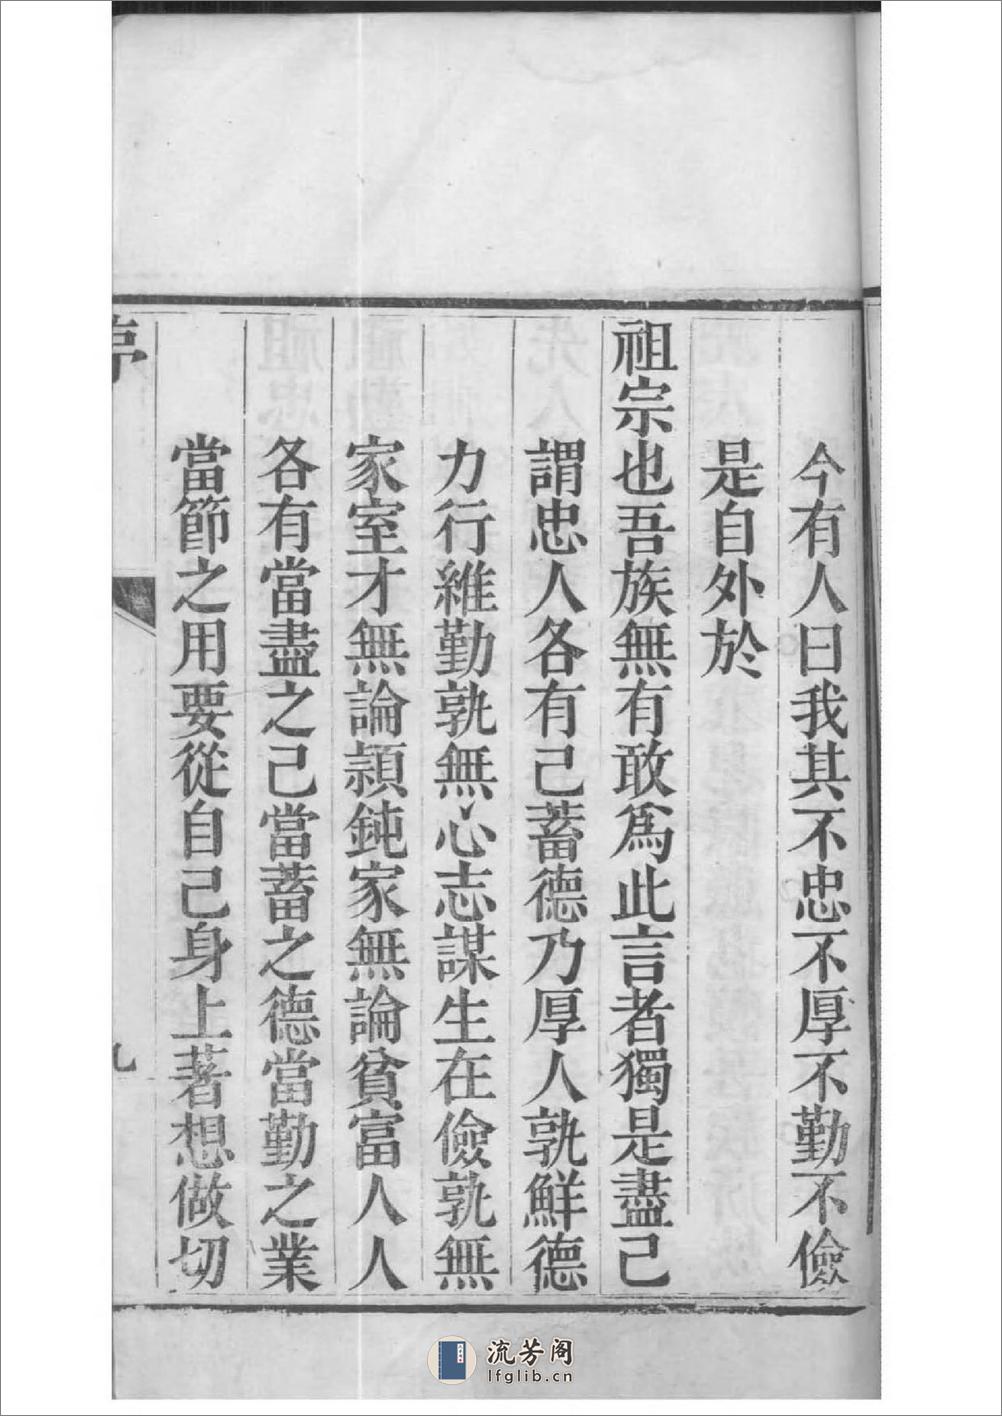 今有人曰我其不忠不厚不勤不儉
是自外於
祖宗也吾族無有敢爲此言者獨是盡己
謂忠人各有己蓄德乃厚人孰鮮德
力行維勤孰無心志謀生在儉孰無
家室才無論穎鈍家無論貧富人人
各有當盡之己當蓄之德當勤之業
當節之用要從自己身上著想做切
九
流芳阁
lfglib.cn